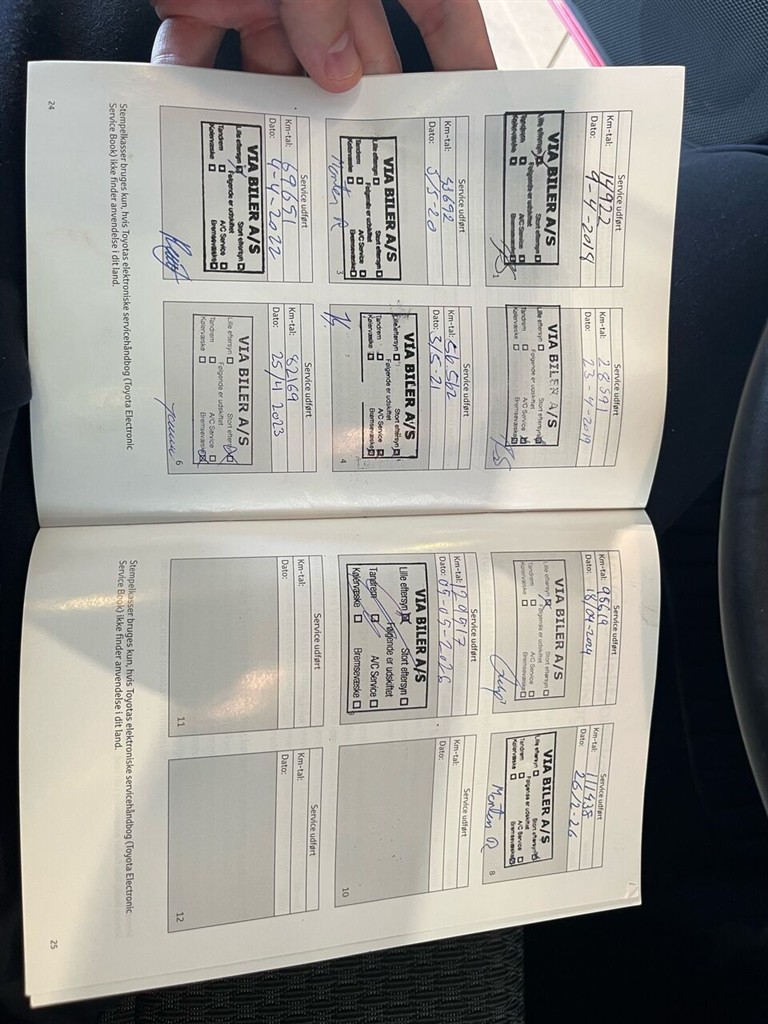 Service udført
Km-tal: 14922
Dato: 9-4-2019
VIA BILER A/S
Lille eftersyn Stort eftersyn
Følgende er udskiftet
Tandrem A/C Service
Kølervæske Bremsevæske
1
Service udført
Km-tal: 28591
Dato: 23-4-2019
VIA BILER A/S
Lille eftersyn Stort eftersyn
Følgende er udskiftet
Tandrem A/C Service
Kølervæske Bremsevæske
Service udført
Km-tal: 43692
Dato: 5/5-20
VIA BILER A/S
Lille eftersyn Stort eftersyn
Følgende er udskiftet
Tandrem A/C Service
Kølervæske Bremsevæske
Morten R
3
Service udført
Km-tal: 56562
Dato: 3/5-21
VIA BILER A/S
Lille eftersyn Stort eftersyn
Følgende er udskiftet
Tandrem A/C Service
Kølervæske Bremsevæske
4
Service udført
Km-tal: 69651
Dato: 4-4-2022
VIA BILER A/S
Lille eftersyn Stort eftersyn
Følgende er udskiftet
Tandrem A/C Service
Kølervæske Bremsevæske
Service udført
Km-tal: 82169
Dato: 25/4 2023
VIA BILER A/S
Lille eftersyn Stort eftersyn
Følgende er udskiftet
Tandrem A/C Service
Kølervæske Bremsevæske
6
Stempelkasser bruges kun, hvis Toyotas elektroniske servicehåndbog (Toyota Electronic
Service Book) ikke finder anvendelse i dit land.
24
Service udført
Km-tal: 95619
Dato: 18/04-2024
VIA BILER A/S
Lille eftersyn Stort eftersyn
Følgende er udskiftet
Tandrem A/C Service
Kølervæske Bremsevæske
Service udført
Km-tal: 111438
Dato: 26/2-26
VIA BILER A/S
Lille eftersyn Stort eftersyn
Følgende er udskiftet
Tandrem A/C Service
Kølervæske Bremsevæske
Morten R
8
Service udført
Km-tal: 129917
Dato: 09-09-2026
VIA BILER A/S
Lille eftersyn Stort eftersyn
Følgende er udskiftet
Tandrem A/C Service
Kølervæske Bremsevæske
9
Service udført
Km-tal:
Dato:
10
Service udført
Km-tal:
Dato:
11
Service udført
Km-tal:
Dato:
12
Stempelkasser bruges kun, hvis Toyotas elektroniske servicehåndbog (Toyota Electronic
Service Book) ikke finder anvendelse i dit land.
25